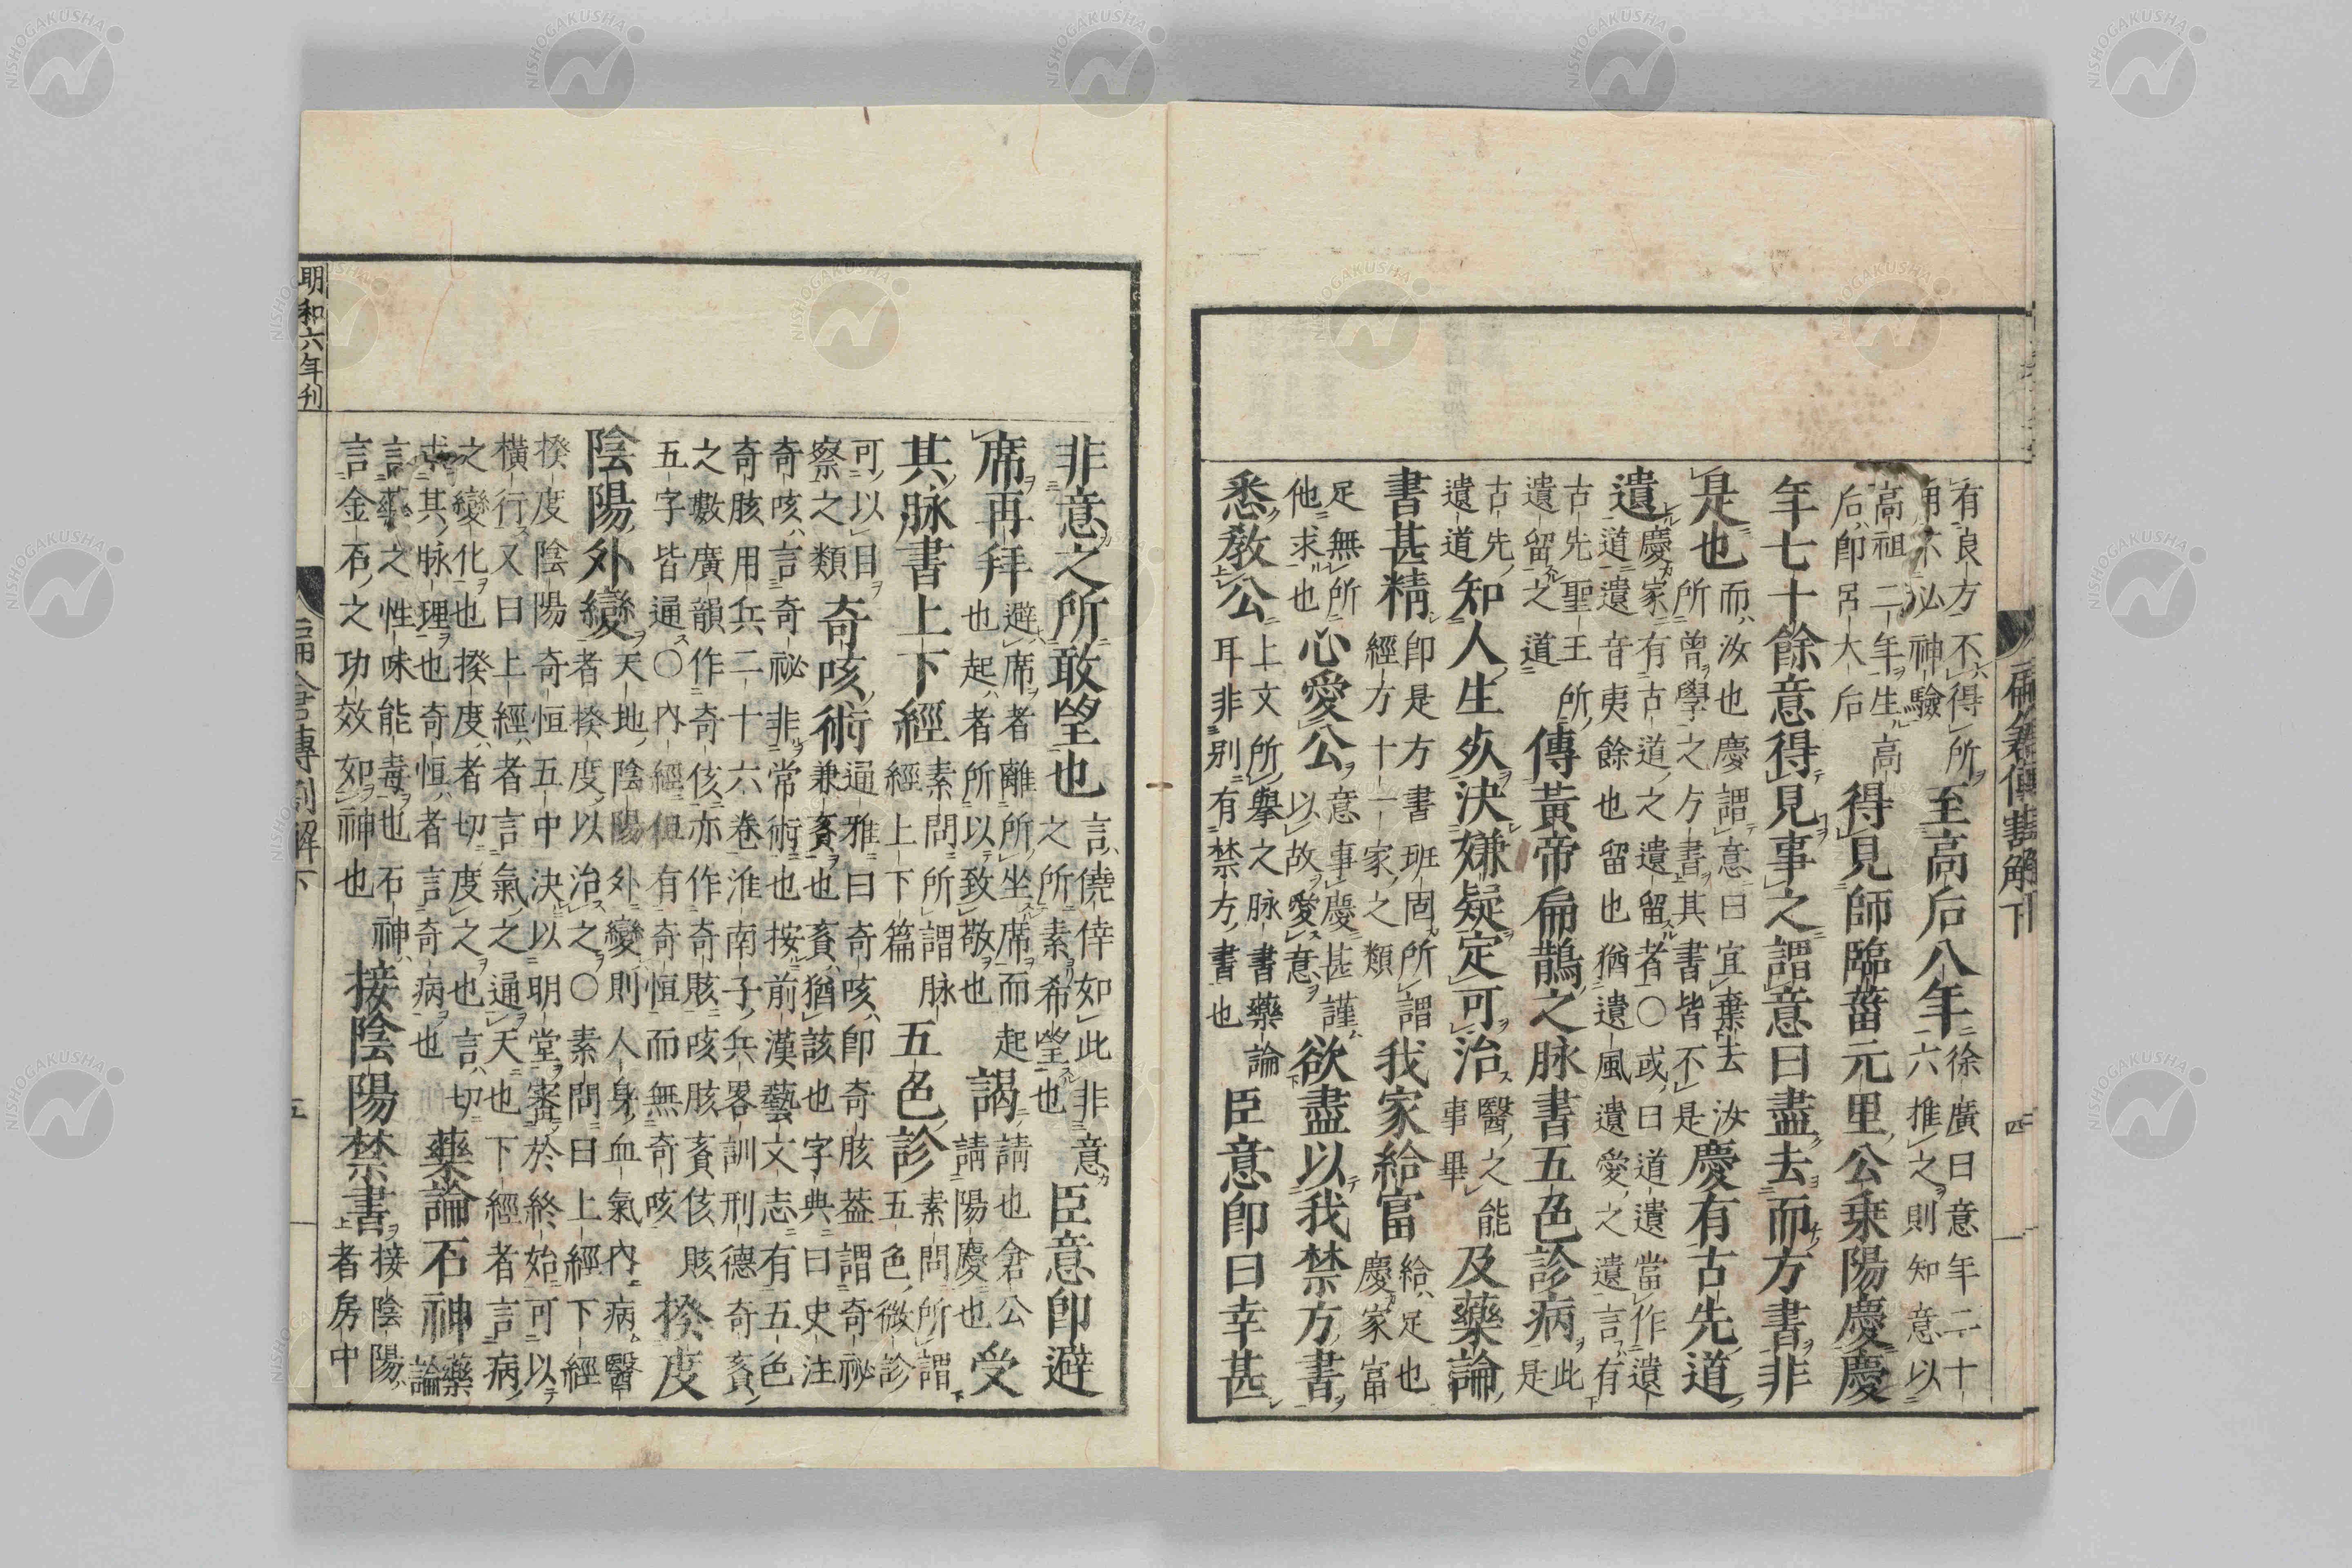 扁倉傳割解下 四
有良方不得所
用不必神驗
至高后八年
徐廣曰意年二十
六推之則知意以
高祖二年生高
后即呂大后
得見師臨菑元里公乘陽慶慶
年七十餘意得見事之謂意曰盡去而方書非
是也
而汝也慶謂意曰宜棄去汝
所曾學之方書其書皆不是
慶有古先道
遺
慶家有古道之遺留者〇或曰道遺當作遺
道遺音夷餘也留也猶遺風遺愛之遺言有
古先聖王所
遺留之道
傳黃帝扁鵲之脉書五色診病
此
是
古先
遺道
知人生死決嫌疑定可治
醫之能
事畢
及藥論
書甚精
即是方書班固所謂
經方十一家之類
我家給富
給足也
慶家富
足無所
他求也
心愛公
意事慶甚謹
以故愛意
欲盡以我禁方書
悉教公
上文所擧之脉書藥論
耳非別有禁方書也
臣意即曰幸甚
非意之所敢望也
言僥倖如此非意
之所素希望也
臣意即避
席再拜
避席者離所坐席而起
也起者所以致敬也
謁
請也倉公
請陽慶也
受
其脉書上下經
素問所謂脉
經上下篇
五色診
素問所謂
五色微診
可以目
察之類
奇咳術
通雅曰奇咳即奇胲蓋謂奇祕
兼賌也賌猶該也字典曰史注
奇咳言奇祕非常術也按前漢藝文志有五色
奇胲用兵二十六卷淮南子兵畧訓刑德奇賌
之數廣韻作奇侅亦作奇賅咳胲賌侅賅
五字皆通〇內經但有奇恒而無奇咳
揆度
陰陽外變
天地陰陽外變則人身血氣內病醫
者揆度以治之〇素問曰上經下經
揆度陰陽奇恒五中決以明堂審於終始可以
橫行又曰上經者言氣之通天也下經者言病
之變化也揆度者切度之也言切
求其脉理也奇恒者言奇病也
藥論石神
藥
論
言藥之性味能毒也石神
言金石之功效如神也
接陰陽禁書
接陰陽
者房中
明和六年刊
扁倉傳割解下 五